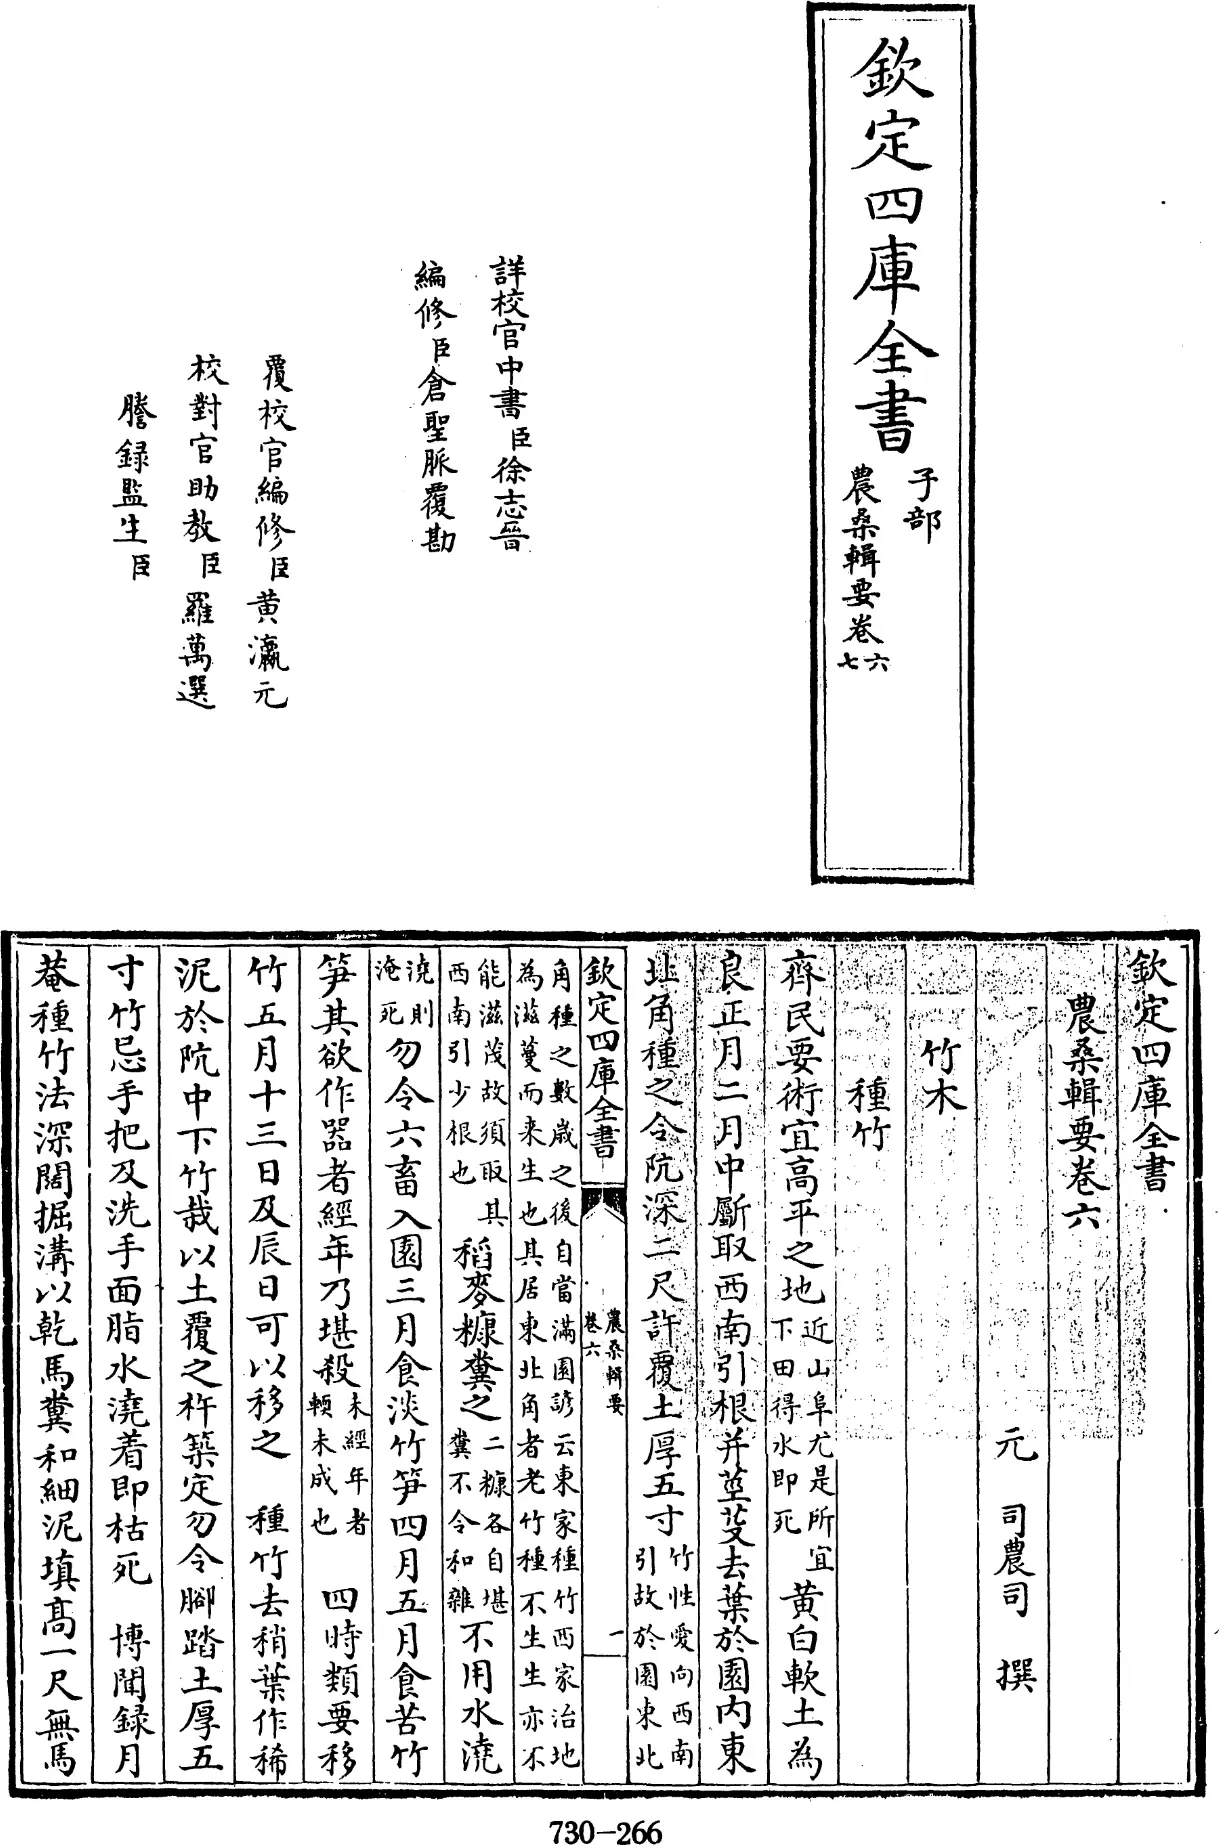 欽定四庫全書
子部
農桑輯要卷六七
詳校官中書臣徐志晉
編修臣倉聖脈覆勘
覆校官編修臣黄瀛元
校對官助教臣羅萬選
謄録監生臣
欽定四庫全書
農桑輯要卷六
元　司農司　撰
竹木
種竹
齊民要術宜高平之地近山阜尤是所宜下田得水即死黄白軟土為
良正月二月中斸取西南引根并莖芟去葉於園内東
北角種之令阬深二尺許覆土厚五寸竹性愛向西南引故於園東北
欽定四庫全書
農桑輯要
卷六
一
角種之數歲之後自當滿園諺云東家種竹西家治地為滋蔓而来生也其居東北角者老竹種不生生亦不
能滋茂故須取其西南引少根也稻麥糠糞之二糠各自堪糞不令和雜不用水澆
澆則淹死勿令六畜入園三月食淡竹笋四月五月食苦竹
笋其欲作器者經年乃堪殺未經年者軟未成也　四時類要移
竹五月十三日及辰日可以移之　種竹去稍葉作稀
泥於阬中下竹栽以土覆之杵築定勿令腳踏土厚五
寸竹忌手把及洗手面脂水澆着即枯死　博聞録月
菴種竹法深闊掘溝以乾馬糞和細泥填高一尺無馬
730-266